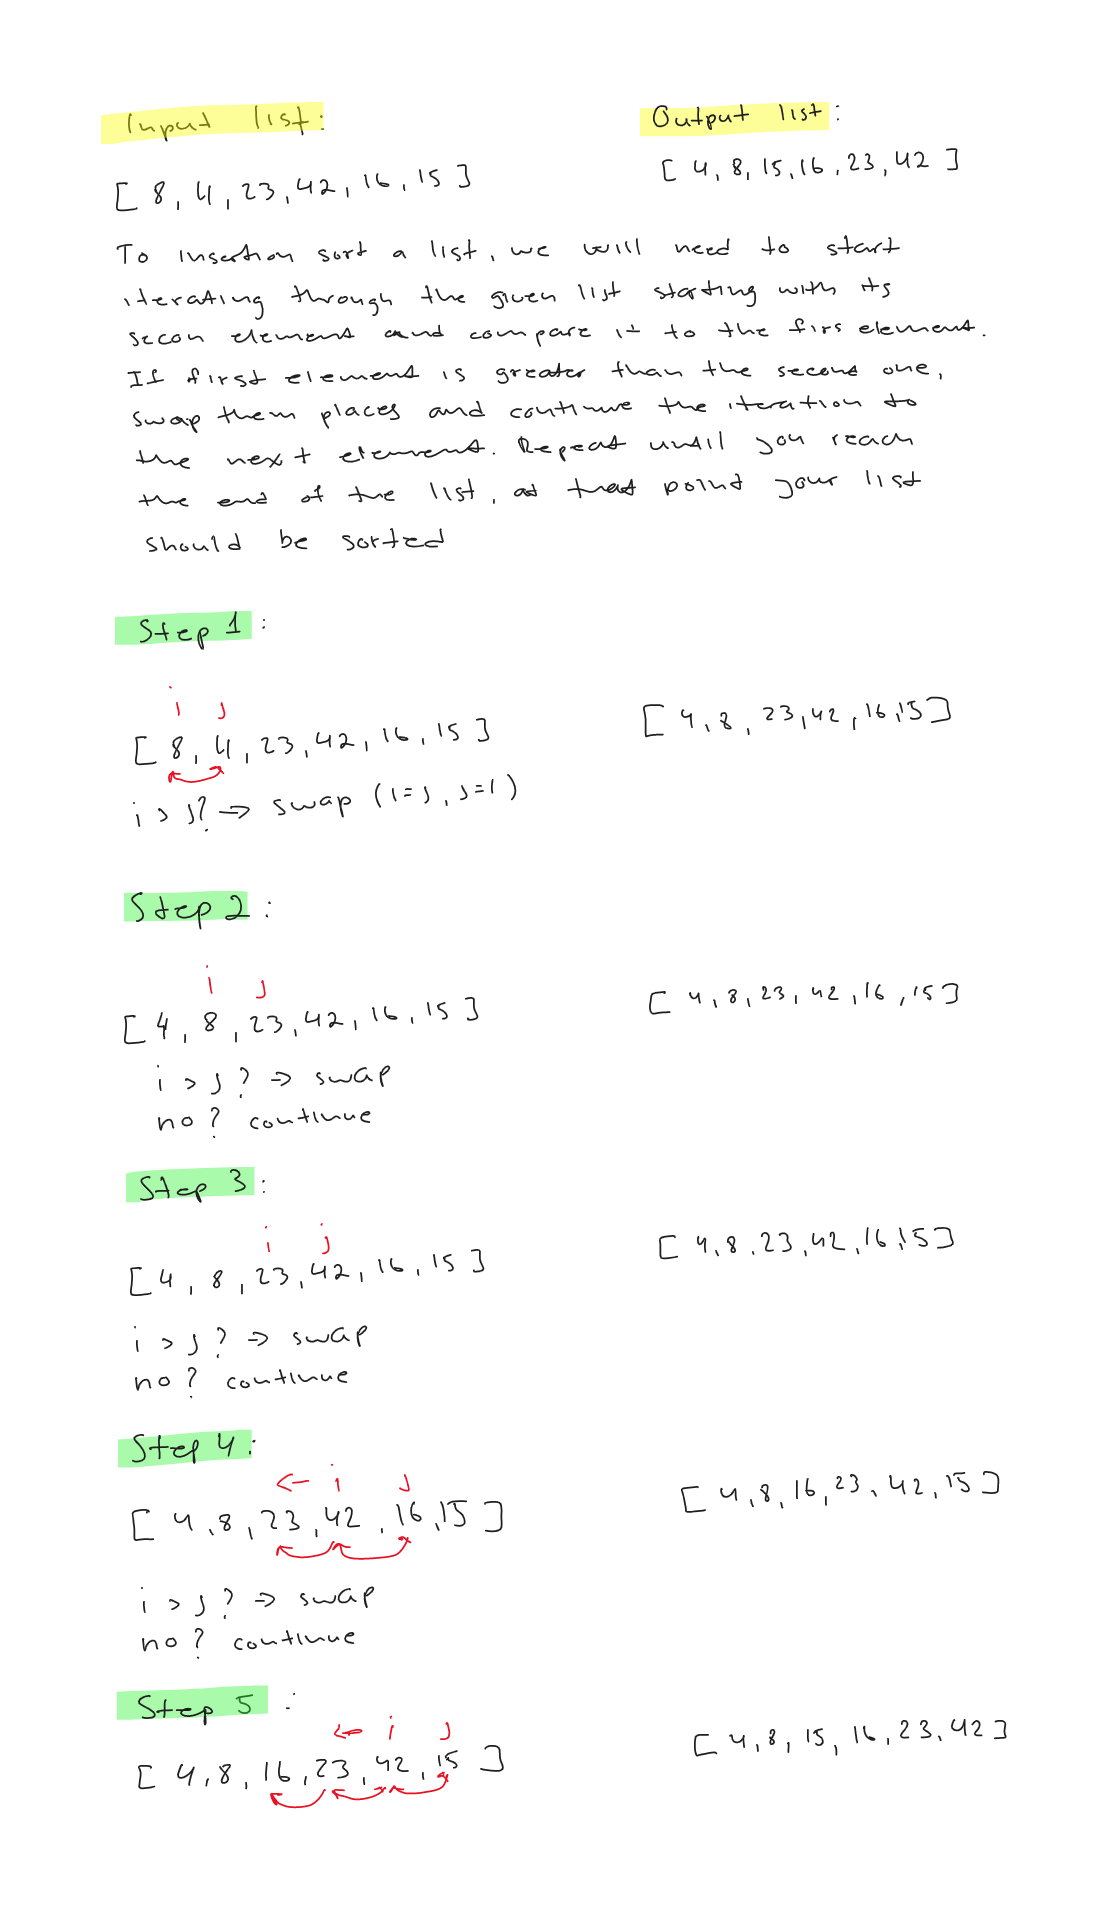 Input list:
Output list:
[ 8, 4, 23, 42, 16, 15 ]
[ 4, 8, 15, 16, 23, 42 ]
To insertion sort a list, we will need to start
iterating through the given list starting with its
secon element and compare it to the firs element.
If first element is greater than the second one,
swap them places and continue the iteration to
the next element. Repeat until you reach
the end of the list, at that point your list
should be sorted
Step 1 :
i j
[ 8, 4, 23, 42, 16, 15 ]
[ 4, 8, 23, 42, 16, 15 ]
i > j? => swap (i=j, j=i)
Step 2 :
i j
[ 4, 8, 23, 42, 16, 15 ]
[ 4, 8, 23, 42, 16, 15 ]
i > j ? => swap
no ? continue
Step 3 :
i j
[ 4, 8, 23, 42, 16, 15 ]
[ 4, 8, 23, 42, 16, 15 ]
i > j ? => swap
no ? continue
Step 4 :
← i j
[ 4, 8, 23, 42, 16, 15 ]
[ 4, 8, 16, 23, 42, 15 ]
i > j ? => swap
no ? continue
Step 5 :
← i j
[ 4, 8, 16, 23, 42, 15 ]
[ 4, 8, 15, 16, 23, 42 ]